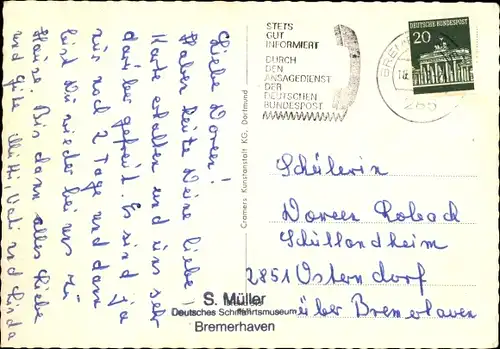 Liebe Doreen!
Haben heute Deine liebe
Karte erhalten und uns sehr
darüber gefreut. Es sind ja
nur noch 2 Tage und dann
bist Du wieder bei uns zu
Hause. Bis dann alles Liebe
und Gute Mutti, Vati und Linda
Cramers Kunstanstalt KG, Dortmund
STETS
GUT
INFORMIERT
DURCH
DEN
ANSAGEDIENST
DER
DEUTSCHEN
BUNDESPOST
DEUTSCHE BUNDESPOST
20
285
Schülerin
Doreen Robach
Schullandheim
2851 Ostendorf
über Bremerhaven
S. Müller
Deutsches Schiffahrtsmuseum
Bremerhaven